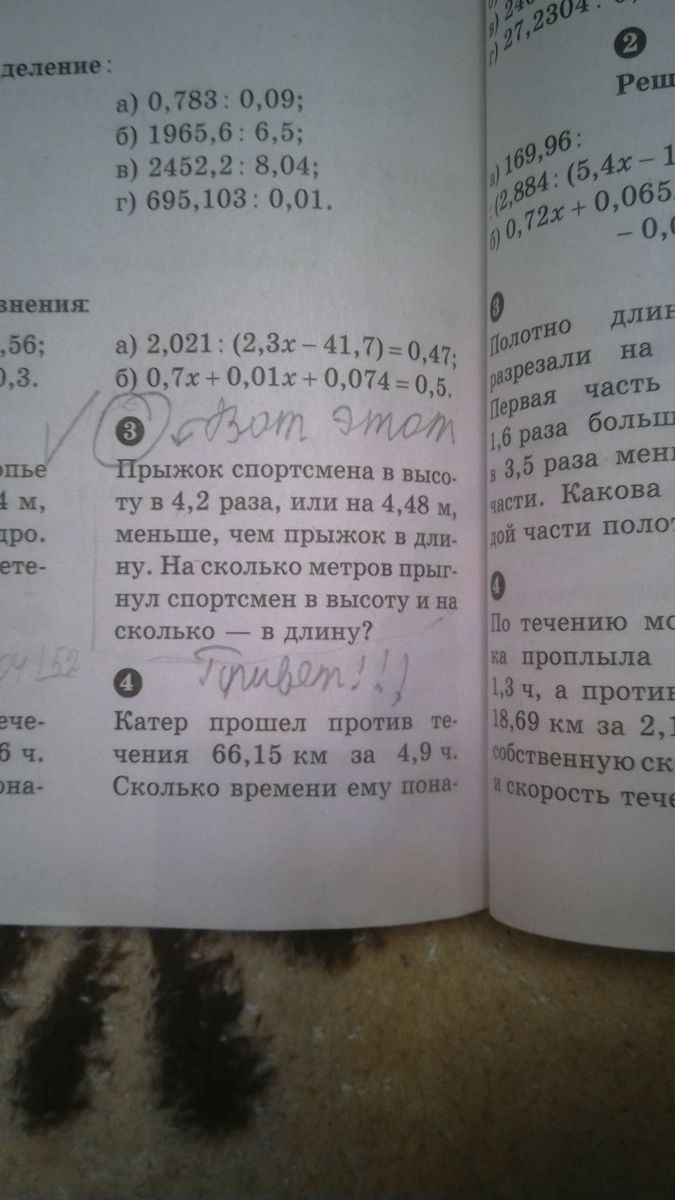 деление:
а) 0,783 : 0,09;
б) 1965,6 : 6,5;
в) 2452,2 : 8,04;
г) 695,103 : 0,01.
внения:
,56;
0,3.
а) 2,021 : (2,3x – 41,7) = 0,47;
б) 0,7x + 0,01x + 0,074 = 0,5.
3
Вот этот
опье
4 м,
дро.
ете-
Прыжок спортсмена в высо-
ту в 4,2 раза, или на 4,48 м,
меньше, чем прыжок в дли-
ну. На сколько метров прыг-
нул спортсмен в высоту и на
сколько — в длину?
4
Привет!!!
ече-
6 ч.
она-
Катер прошел против те-
чения 66,15 км за 4,9 ч.
Сколько времени ему пона-
г) 27,2304 :
2
Реш
а) 169,96 :
: (2,884 : (5,4x – 1
б) 0,72x + 0,065
– 0,0
3
Полотно длин
разрезали на
Первая часть
1,6 раза больш
в 3,5 раза мень
части. Какова
дой части полот
4
По течению мо
ка проплыла
1,3 ч, а против
18,69 км за 2,1
собственную ск
и скорость тече